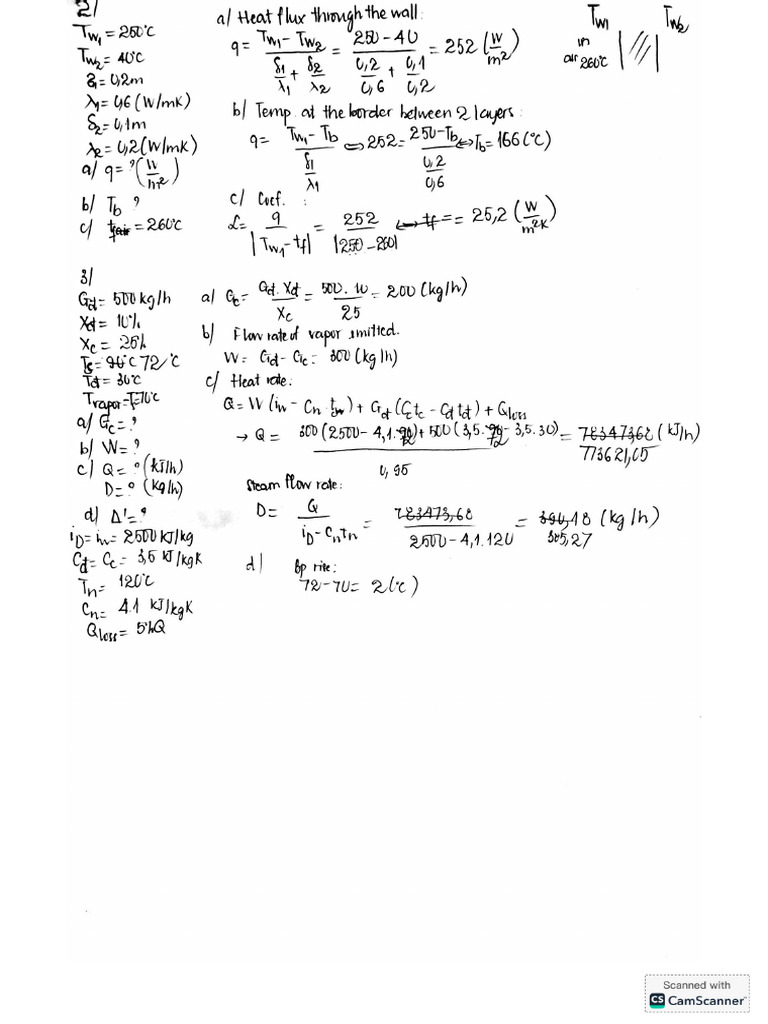 2/
Tw1 = 250°C
Tw2 = 40°C
δ1 = 0,2m
λ1 = 0,6 (W/mK)
δ2 = 0,1m
λ2 = 0,2 (W/mK)
a/ q = ? (W/m²)
b/ Tb ?
c/ tf = 260°C
a/ Heat flux through the wall:
q = (Tw1 - Tw2)/(δ1/λ1 + δ2/λ2) = (250 - 40)/(0,2/0,6 + 0,1/0,2) = 252 (W/m²)
b/ Temp at the border between 2 layers:
q = (Tw1 - Tb)/(δ1/λ1) ⇔ 252 = (250 - Tb)/(0,2/0,6) ⇔ Tb = 166 (°C)
c/ Coef. :
α = q/|Tw1 - tf| = 252/|250 - 260| = 25,2 (W/m²K)
Tw1 Tw2
in
air 260°C
3/
Gd = 500 kg/h
Xd = 10%
Xc = 25%
Ts = 90°C 72°C
Td = 30°C
Tvapor = T = 70°C
a/ Gc = ?
b/ W = ?
c/ Q = ? (kJ/h)
D = ? (kg/h)
d/ Δ' = ?
iD = iw = 2500 kJ/kg
Cd = Cc = 3,5 kJ/kgK
Tn = 120°C
Cn = 4.1 kJ/kgK
Qloss = 5%Q
a/ Gc = Gd. Xd/Xc = 500. 10/25 = 200 (kg/h)
b/ Flow rate of vapor emitted.
W = Gd - Gc = 300 (kg/h)
c/ Heat rate:
Q = W (iw - Cn tw) + Gd (Cc tc - Cd td) + Qloss
→ Q = (300 (2500 - 4,1. 72) + 500 (3,5. 72 - 3,5. 30))/0,95 = 783473,68 (kJ/h)
773621,05
Steam flow rate:
D = Q/(iD - Cn tn) = 783473,68/(2500 - 4,1. 120) = 390,18 (kg/h)
385,27
d/ bp rise:
72 - 70 = 2 (°C)
Scanned with
CS CamScanner